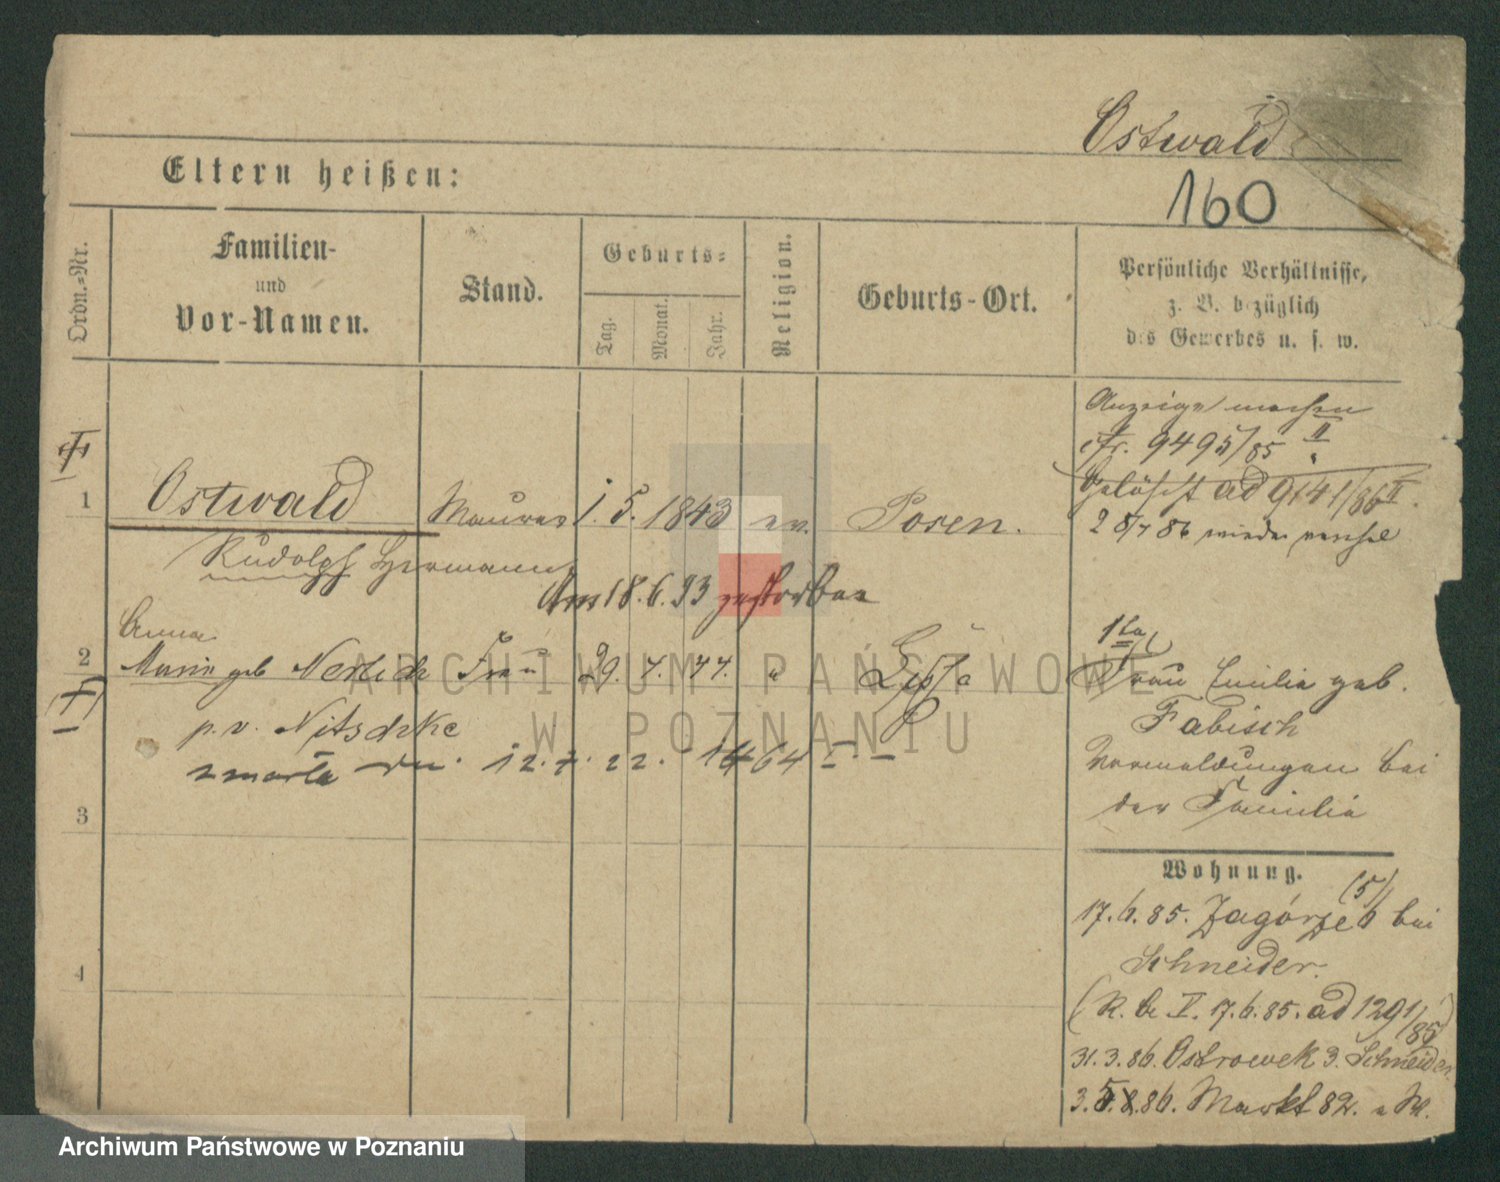 Ostwald
Eltern heißen:
160
Ordn.-Nr.
Familien-
und
Vor-Namen.
Stand.
Geburts-
Tag.
Monat.
Jahr.
Religion.
Geburts-Ort.
Persönliche Verhältnisse,
z. B. bezüglich
des Gewerbes u. s. w.
Anzeige machen
cfr. 9495/85 II
Gelöscht ad 9141/86 II.
28/7 86 wieder
1
Ostwald Maurer 1. 5. 1843 ev. Posen.
Rudolph Hermann
Am 18.6.93 gestorben
Anna
2
Marie geb Nerlich Frau 29. 7. 44. " Lissa
p. v. Nitschke
zmarła dn. 12. 7. 22. 1464 I.
1ta
Frau Emilie geb.
Fabisch
Vermeldungen bei
der Familie
3
Wohnung.
17.6.85. Zagórze 6 (5) bei
Schneider.
(R. Be V. 17.6.85. ad 1291/85)
4
31.3.86. Ostrowek 3. Schneider.
3.5.8.86. Markt 82. a W.
ARCHIWUM PAŃSTWOWE
W POZNANIU
Archiwum Państwowe w Poznaniu